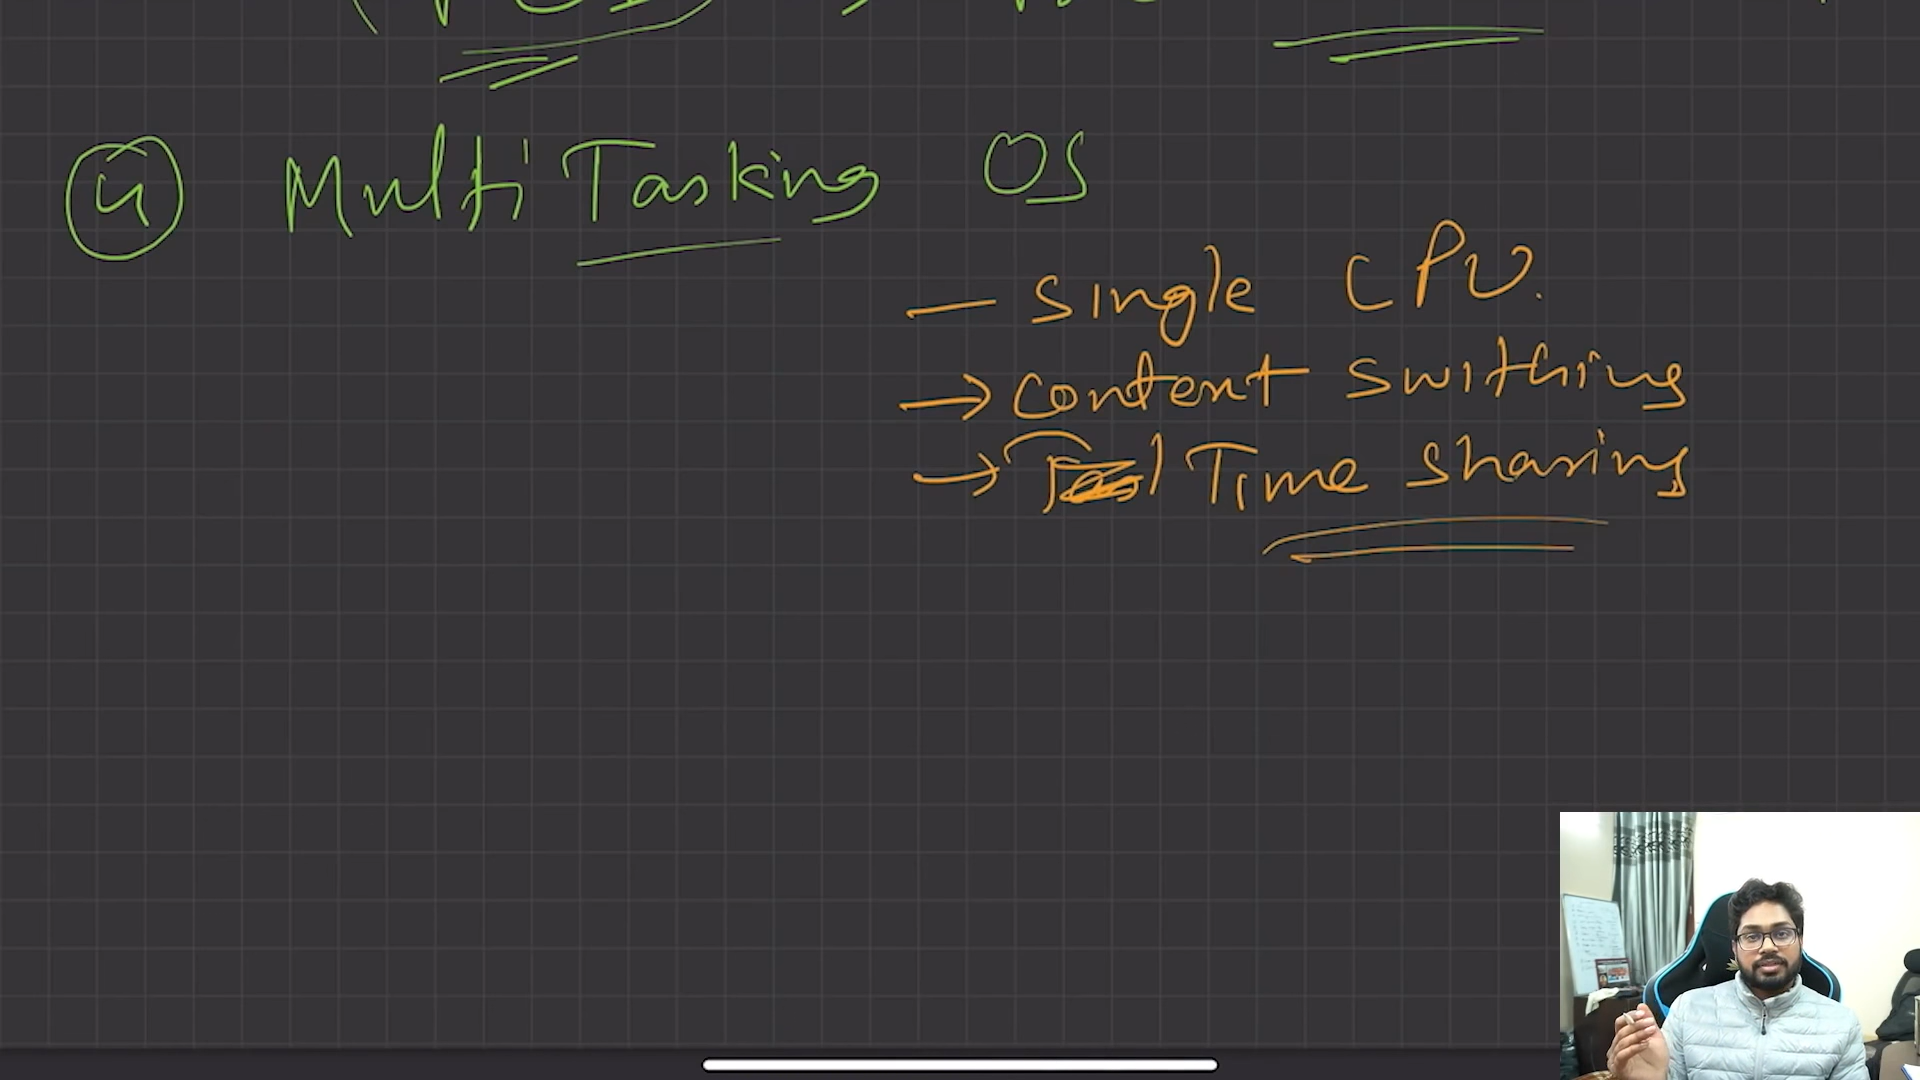 4 MultiTasking OS
— Single CPU.
→ Context swithing
→ Time sharing